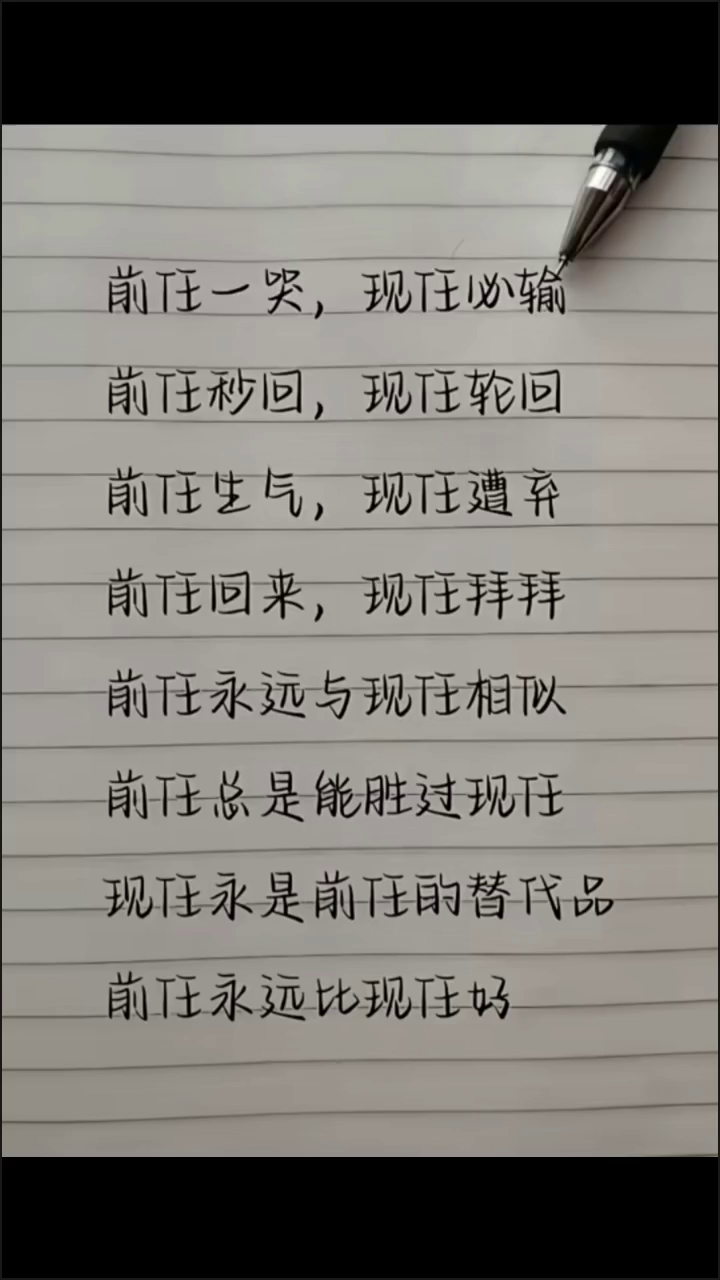 前任一哭，现任必输
前任秒回，现任轮回
前任生气，现任遭弃
前任回来，现任拜拜
前任永远与现任相似
前任总是能胜过现任
现任永是前任的替代品
前任永远比现任好